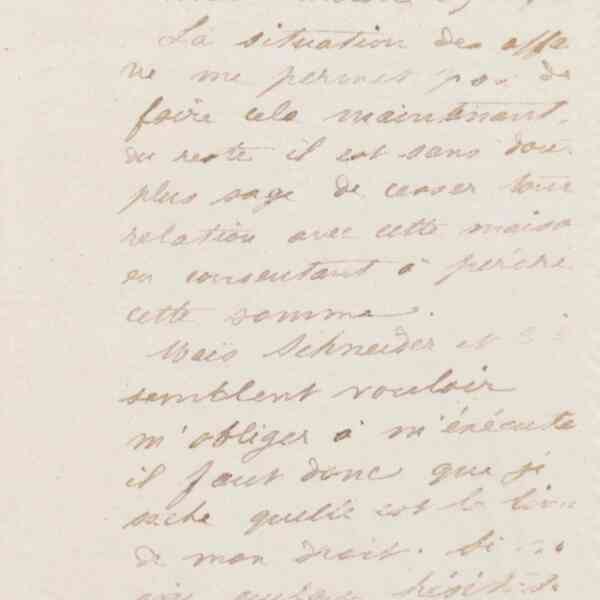 La situation des affa
ne me permet pas de
faire cela maintenant.
du reste il est sans dou
plus sage de cesser tout
relation avec cette maiso
en consentant à perdre
cette somme.
Mais Schneider et
semblent vouloir
m'obliger à m'exécute
il faut donc que je
sache quelle est la
de mon droit. Si